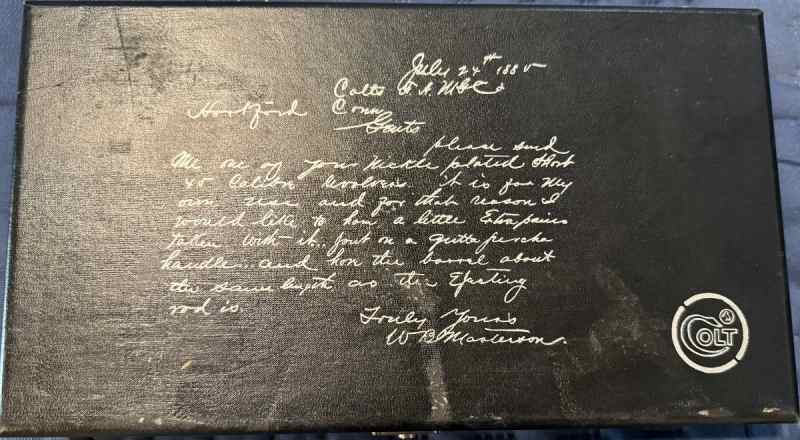 July 24th 1885
Colts F. A. Mfg Co
Hartford Conn
Gents
please send
Me one of your Nickle plated Short
45 Calibre Revolvers. It is for My
own use and for that reason I
would like to have a little Extra pains
taken with it. put on a gutta percha
handle.. and have the barrel about
the same length as the Ejecting
rod is.
Truly Yours
W B Masterson.
COLT